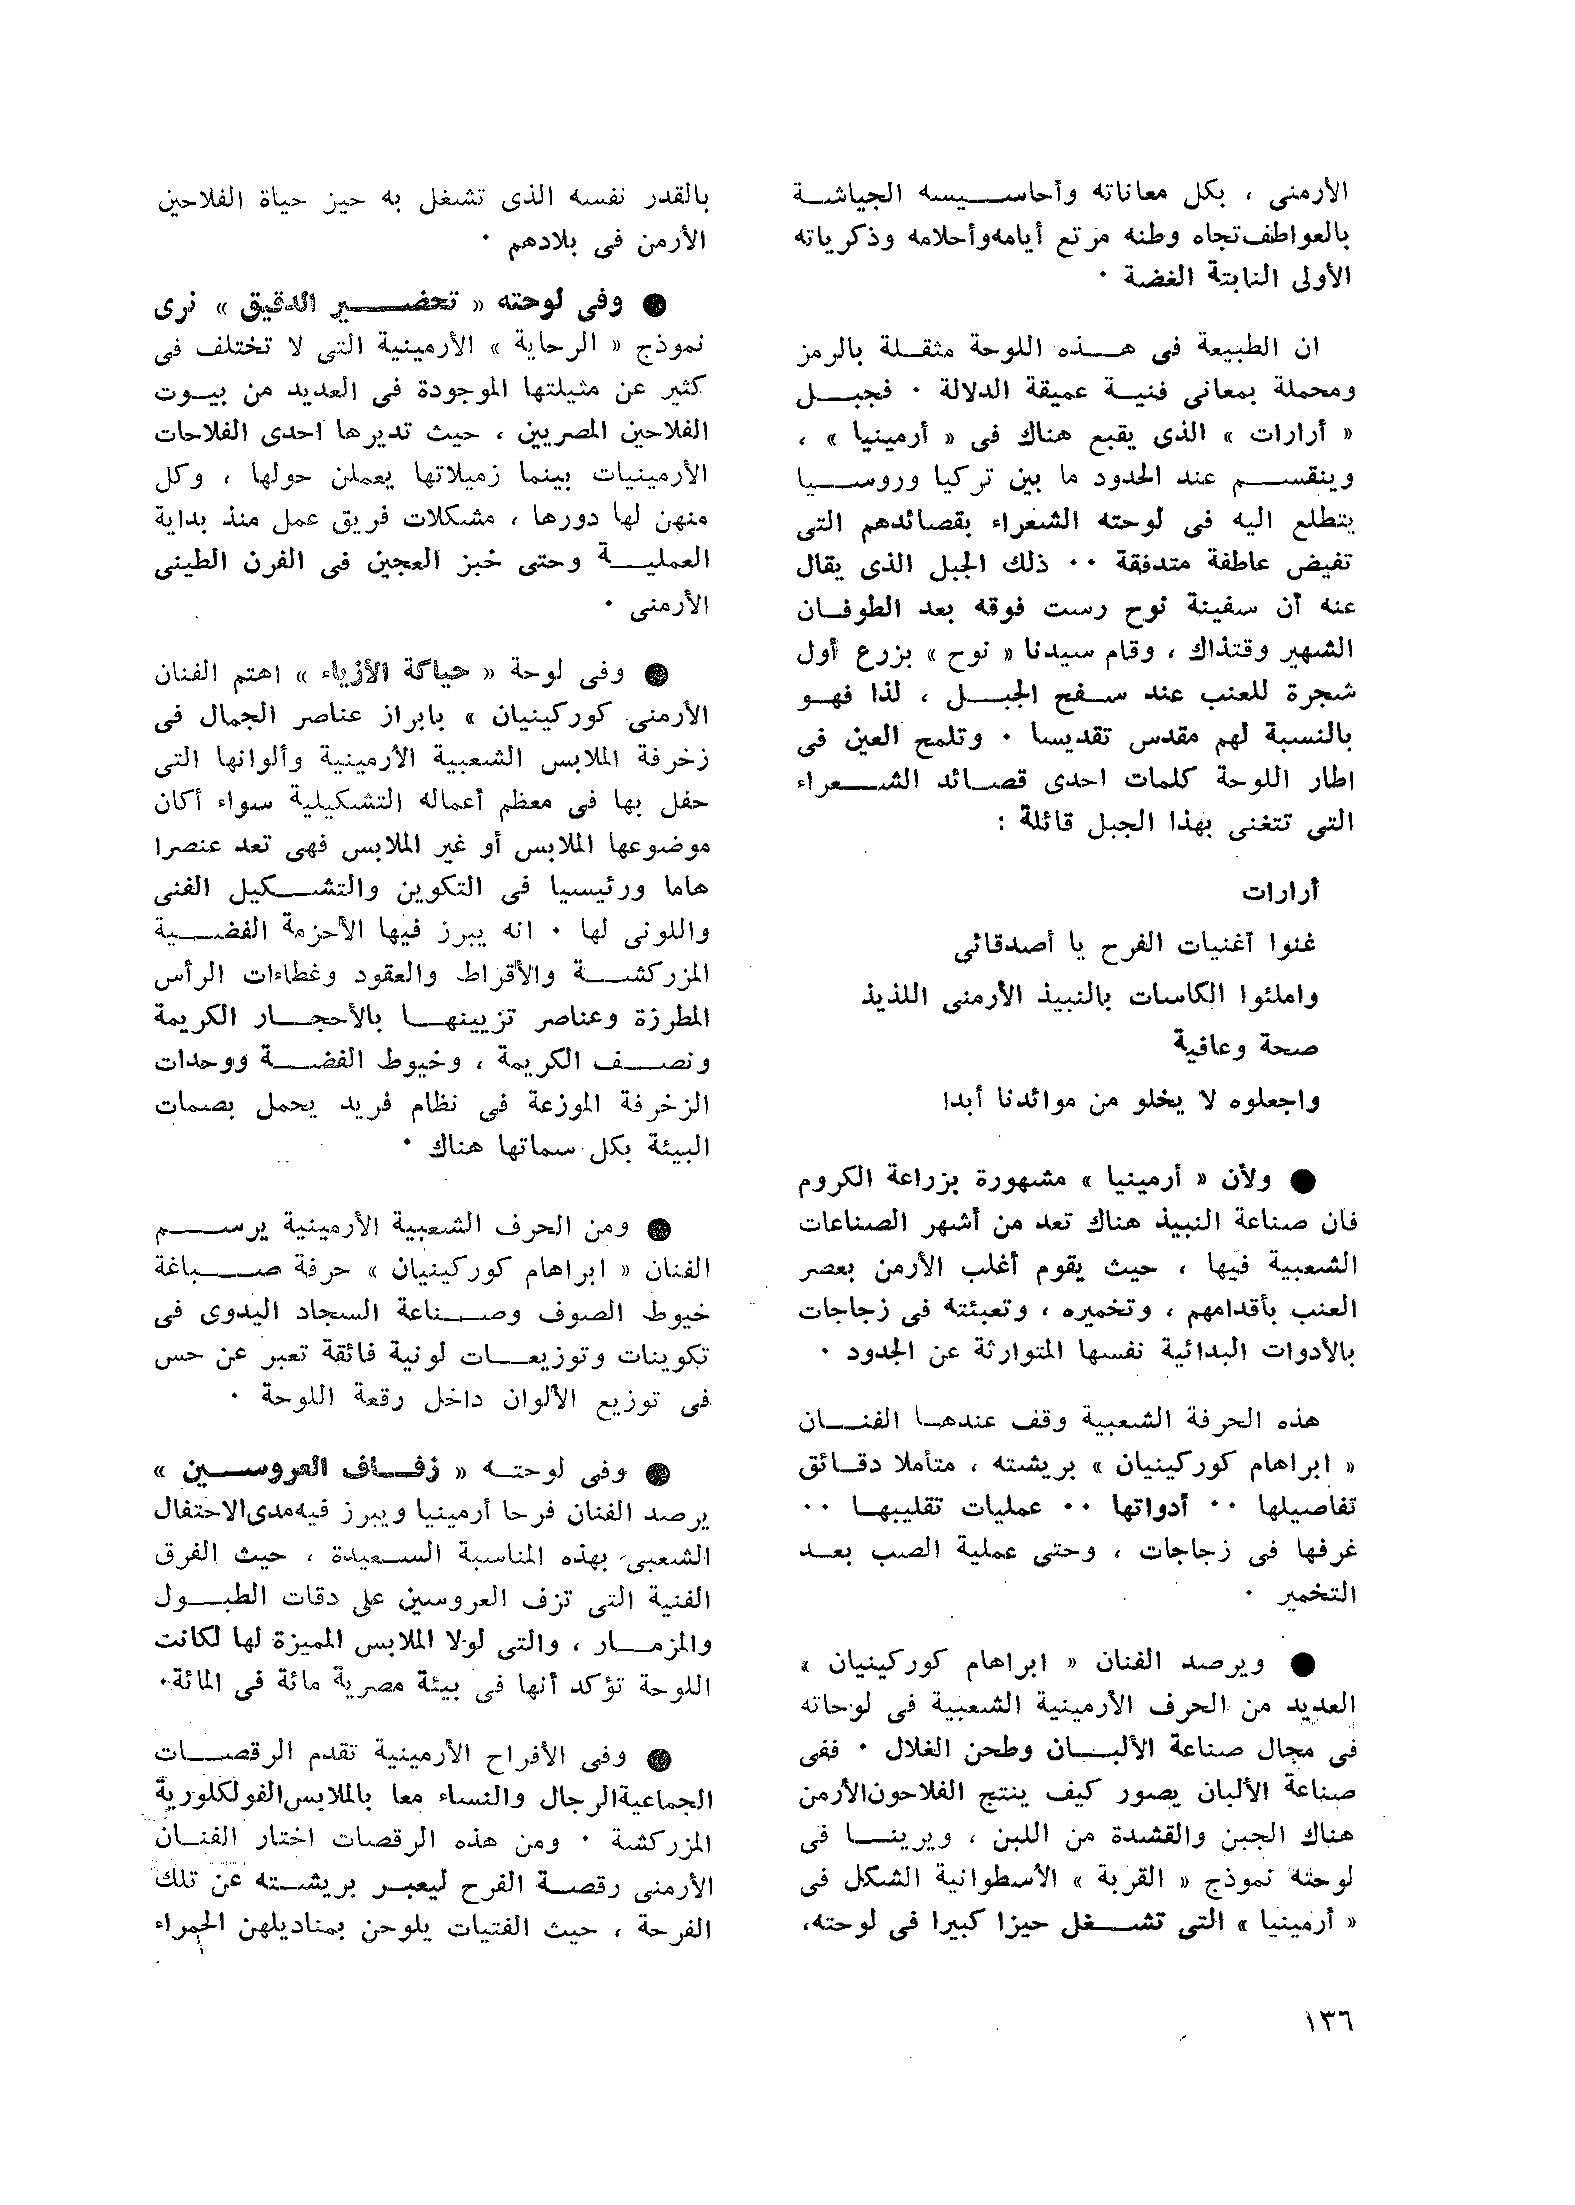 الأرمنى ، بكل معاناته وأحاسيسه الجياشة
بالعواطف تجاه وطنه مرتع أيامه وأحلامه وذكرياته
الأولى النابتة الغضة ·
ان الطبيعة فى هذه اللوحة مثقلة بالرمز
ومحملة بمعانى فنية عميقة الدلالة · فجبل
« أرارات » الذى يقبع هناك فى « أرمينيا » ،
وينقسم عند الحدود ما بين تركيا وروسيا
يتطلع اليه فى لوحته الشعراء بقصائدهم التى
تفيض عاطفة متدفقة ·· ذلك الجبل الذى يقال
عنه أن سفينة نوح رست فوقه بعد الطوفان
الشهير وقتذاك ، وقام سيدنا « نوح » بزرع أول
شجرة للعنب عند سفح الجبل ، لذا فهو
بالنسبة لهم مقدس تقديسا · وتلمح العين فى
اطار اللوحة كلمات احدى قصائد الشعراء
التى تتغنى بهذا الجبل قائلة :
أرارات
غنوا أغنيات الفرح يا أصدقائى
واملئوا الكاسات بالنبيذ الأرمنى اللذيذ
صحة وعافية
واجعلوه لا يخلو من موائدنا أبدا
● ولأن « أرمينيا » مشهورة بزراعة الكروم
فان صناعة النبيذ هناك تعد من أشهر الصناعات
الشعبية فيها ، حيث يقوم أغلب الأرمن بعصر
العنب بأقدامهم ، وتخميره ، وتعبئته فى زجاجات
بالأدوات البدائية نفسها المتوارثة عن الجدود ·
هذه الحرفة الشعبية وقف عندها الفنان
« ابراهام كوركينيان » بريشته ، متأملا دقائق
تفاصيلها ·· أدواتها ·· عمليات تقليبها ··
غرفها فى زجاجات ، وحتى عملية الصب بعد
التخمير ·
● ويرصد الفنان « ابراهام كوركينيان »
العديد من الحرف الأرمينية الشعبية فى لوحاته
فى مجال صناعة الألبان وطحن الغلال · ففى
صناعة الألبان يصور كيف ينتج الفلاحون الأرمن
هناك الجبن والقشدة من اللبن ، ويرينا فى
لوحته نموذج « القربة » الأسطوانية الشكل فى
« أرمينيا » التى تشغل حيزا كبيرا فى لوحته،
بالقدر نفسه الذى تشغل به حيز حياة الفلاحين
الأرمن فى بلادهم ·
● وفى لوحته « تحضير الدقيق » نرى
نموذج « الرحاية » الأرمينية التى لا تختلف فى
كثير عن مثيلتها الموجودة فى العديد من بيوت
الفلاحين المصريين ، حيث تديرها احدى الفلاحات
الأرمينيات بينما زميلاتها يعملن حولها ، وكل
منهن لها دورها ، مشكلات فريق عمل منذ بداية
العملية وحتى خبز العجين فى الفرن الطينى
الأرمنى ·
● وفى لوحة « حياكة الأزياء » اهتم الفنان
الأرمنى كوركينيان » بابراز عناصر الجمال فى
زخرفة الملابس الشعبية الأرمينية وألوانها التى
حفل بها فى معظم أعماله التشكيلية سواء أكان
موضوعها الملابس أو غير الملابس فهى تعد عنصرا
هاما ورئيسيا فى التكوين والتشكيل الفنى
واللونى لها · انه يبرز فيها الأحزمة الفضية
المزركشة والأقراط والعقود وغطاءات الرأس
المطرزة وعناصر تزيينها بالأحجار الكريمة
ونصف الكريمة ، وخيوط الفضة ووحدات
الزخرفة الموزعة فى نظام فريد يحمل بصمات
البيئة بكل سماتها هناك ·
● ومن الحرف الشعبية الأرمينية يرسم
الفنان « ابراهام كوركينيان » حرفة صباغة
خيوط الصوف وصناعة السجاد اليدوى فى
تكوينات وتوزيعات لونية فائقة تعبر عن حس
فى توزيع الألوان داخل رقعة اللوحة ·
● وفى لوحته « زفاف العروسين »
يرصد الفنان فرحا أرمينيا ويبرز فيه مدى الاحتفال
الشعبى بهذه المناسبة السعيدة ، حيث الفرق
الفنية التى تزف العروسين على دقات الطبول
والمزمار ، والتى لولا الملابس المميزة لها لكانت
اللوحة تؤكد أنها فى بيئة مصرية مائة فى المائة·
● وفى الأفراح الأرمينية تقدم الرقصات
الجماعية الرجال والنساء معا بالملابس الفولكلورية
المزركشة · ومن هذه الرقصات اختار الفنان
الأرمنى رقصة الفرح ليعبر بريشته عن تلك
الفرحة ، حيث الفتيات يلوحن بمناديلهن الحمراء
١٣٦